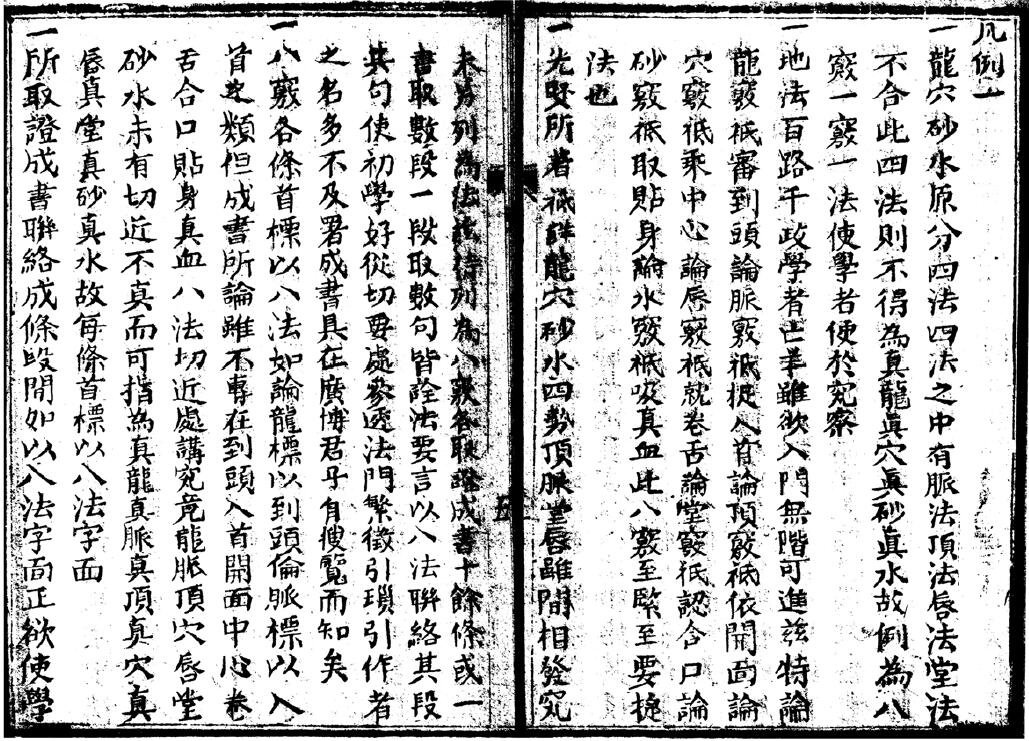 凡例一
一龍穴砂水原分四法四法之中有脈法頂法唇法堂法
不合此四法則不得為真龍真穴真砂真水故例為八
竅一竅一法使學者使於究察
一地法百路千政學者亡羊雖欲入門無階可進茲特論
龍竅祇審到頭論脈竅祇捉入首論頂竅祇依開面論
穴竅祇乘中心論唇竅祇就卷舌論堂竅祇認合口論
砂竅祇取貼身論水竅祇吸真血此八竅至緊至要捷
法也
一先賢所著祇詳龍穴砂水四勢頂脈堂唇雖間相發究
未另列為法茲特列為八竅各取證成書十餘條或一
書取數段一段取數句皆詮法要言以八法聯絡其段
其句使初學好從切要處參透法門繁徵引瑣引作者
之名多不及署成書具在廣博君子自搜覽而知矣
一八竅各條首標以八法如論龍標以到頭倫脈標以入
首之類但成書所論雖不專在到頭入首開面中心卷
舌合口貼身真血八法切近處講究竟龍脈頂穴唇堂
砂水未有切近不真而可指為真龍真脈真頂真穴真
唇真堂真砂真水故每條首標以八法字面
一所取證成書聯絡成條段間如以八法字面正欲使學